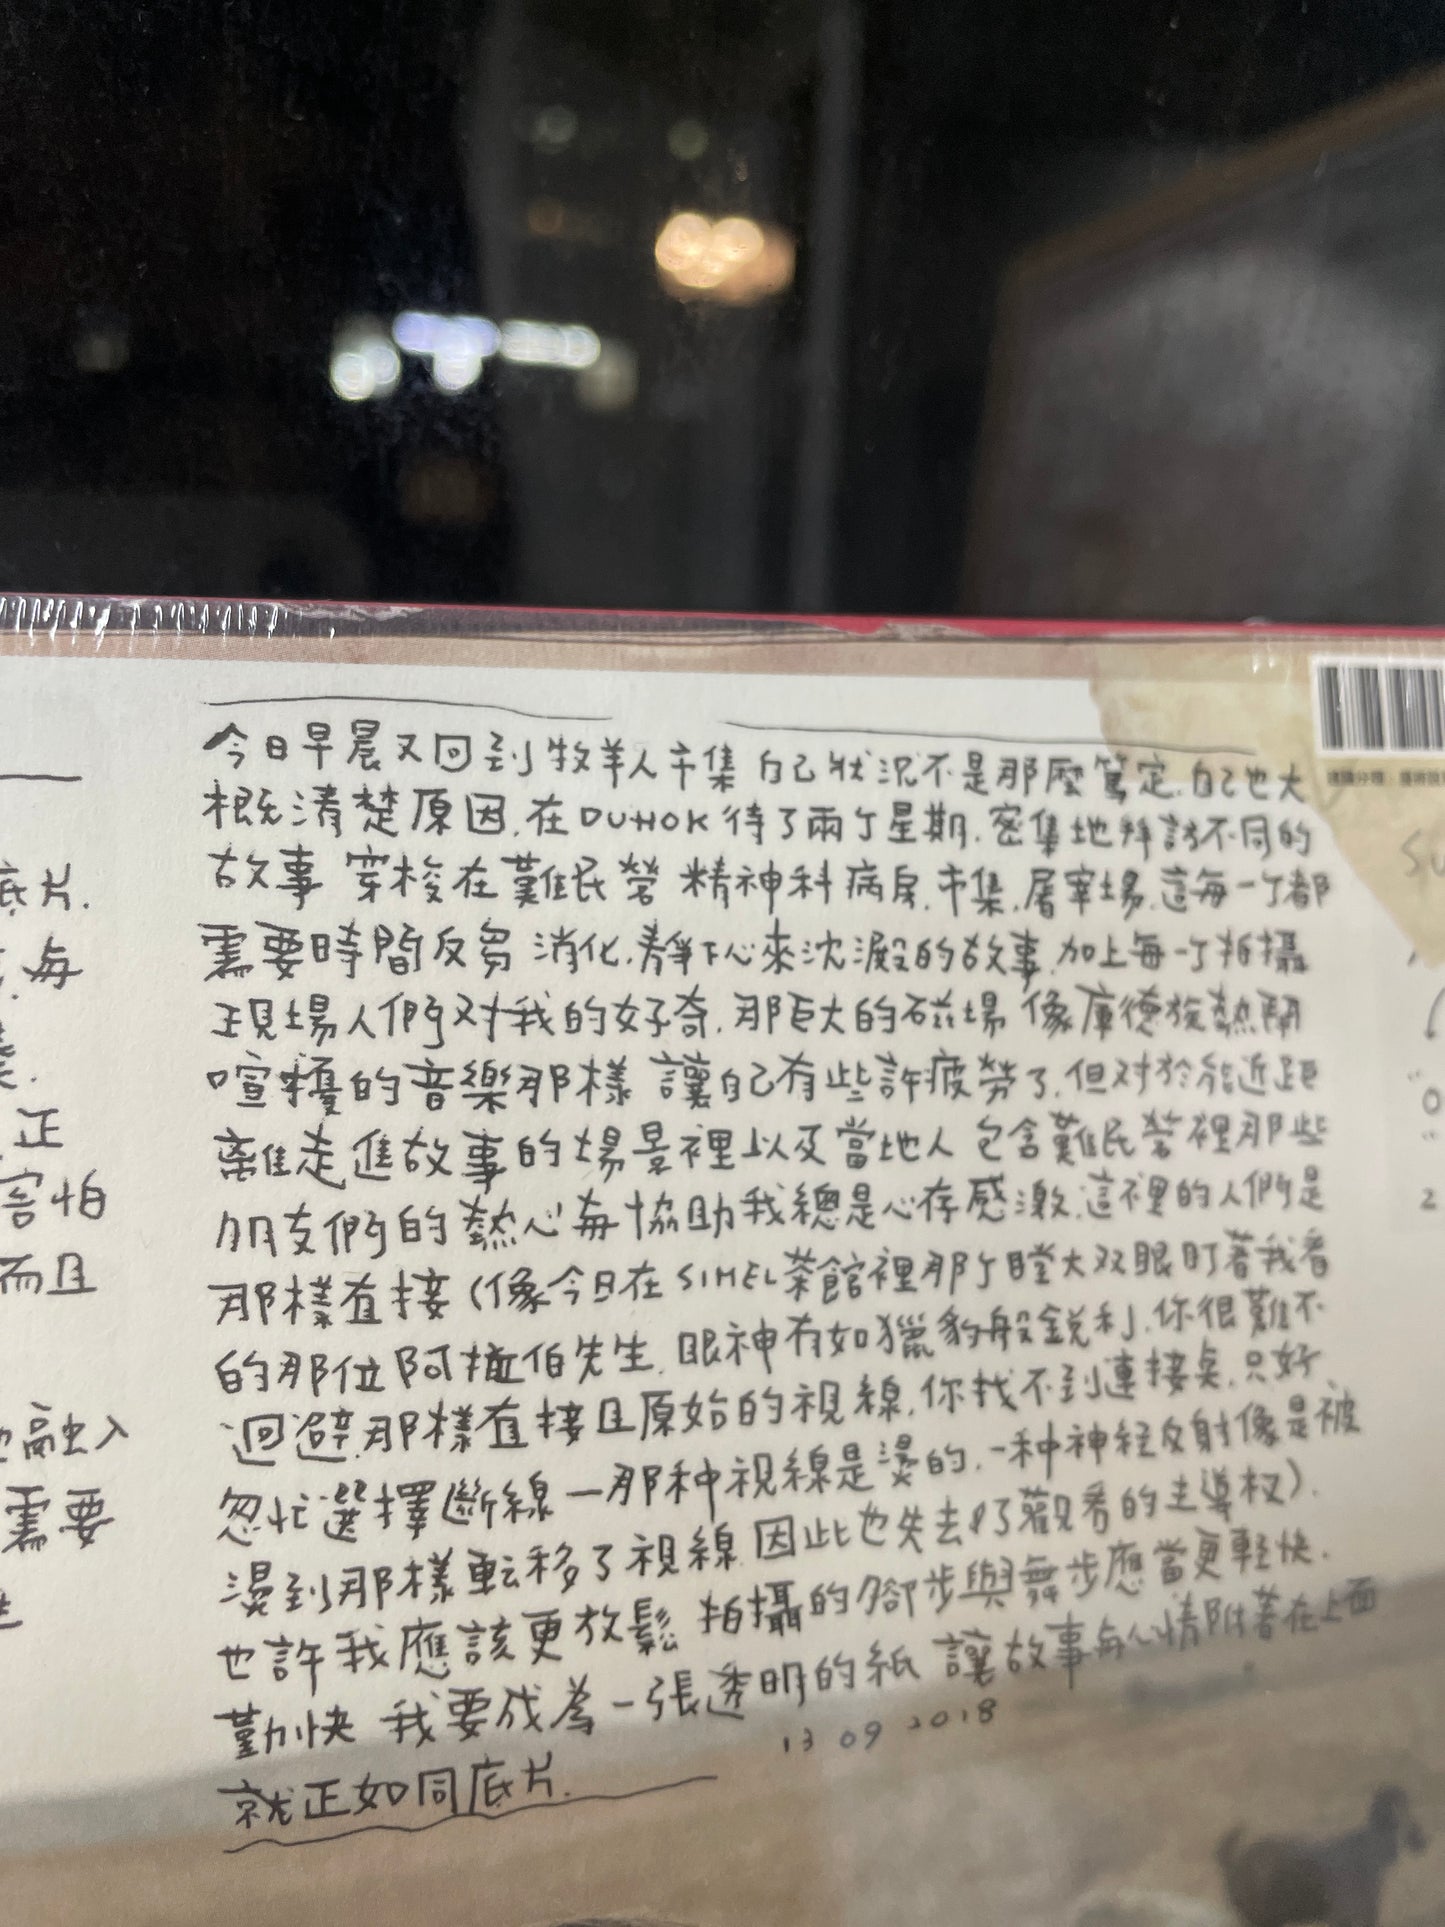 底片.
每
正
害怕
而且
融入
需要
今日早晨又回到牧羊人市集 自己狀況不是那麼篤定.自己也大
概清楚原因.在DUHOK待了兩个星期.密集地拜訪不同的
故事 穿梭在難民營 精神科病房.市集.屠宰場.這每一个都
需要時間反芻 消化.靜下心來沈澱的故事.加上每一个拍攝
現場人們对我的好奇.那巨大的磁場 像庫德族熱鬧
喧擾的音樂那樣 讓自己有些許疲勞了.但对於能近距
離走進故事的場景裡以及當地人 包含難民營裡那些
朋友們的熱心每協助我總是心存感激.這裡的人們是
那樣直接(像今日在SIMEL茶館裡那个瞪大双眼盯著我看
的那位阿拉伯先生.眼神有如獵豹般銳利.你很難不
迴避.那樣直接且原始的視線.你找不到連接矣.只好
忽忙選擇斷線—那种視線是燙的.一种神経反射像是被
燙到那樣転移了視線 因此也失去了觀看的主導权).
也許我應該更放鬆 拍攝的腳步與舞步應當更輕快.
勤快 我要成為一張透明的紙 讓故事每心情附著在上面
就正如同底片.
13 09 2018
SU
"0
"
2